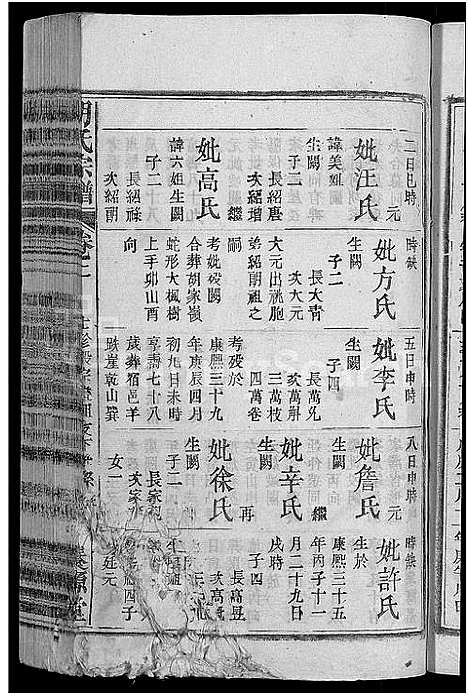 二日巳時
妣汪氏 元
諱美姐
生闕
子二
長紹唐
次紹增
妣高氏 繼
諱六姐生闕
子二
長紹祿
次紹朝
時缺
妣方氏
生闕
子二
長大靑
次大元
大元出祧胞
弟紹朝祖之
嗣
考妣歿闕
合葬胡家嶺
蛇形大楓樹
上手卯山酉
向
五日申時
妣李氏
生闕
子四
長萬兄
次萬斛
三萬枝
四萬卷
考歿於
康熙三十九
年庚辰四月
初九日未時
享壽七十八
歲葬宿邑羊
跌崖乾山巽
八日申時
妣詹氏 元
生闕
妣辛氏 繼
生闕
妣徐氏 再
生闕
子二
長家
次家
女一
時缺
妣許氏
生於
康熙三十五
年丙子十一
月二十九日
戌時
子四
長萬昱
次萬
四子
廷元
胡氏宗譜
卷之二